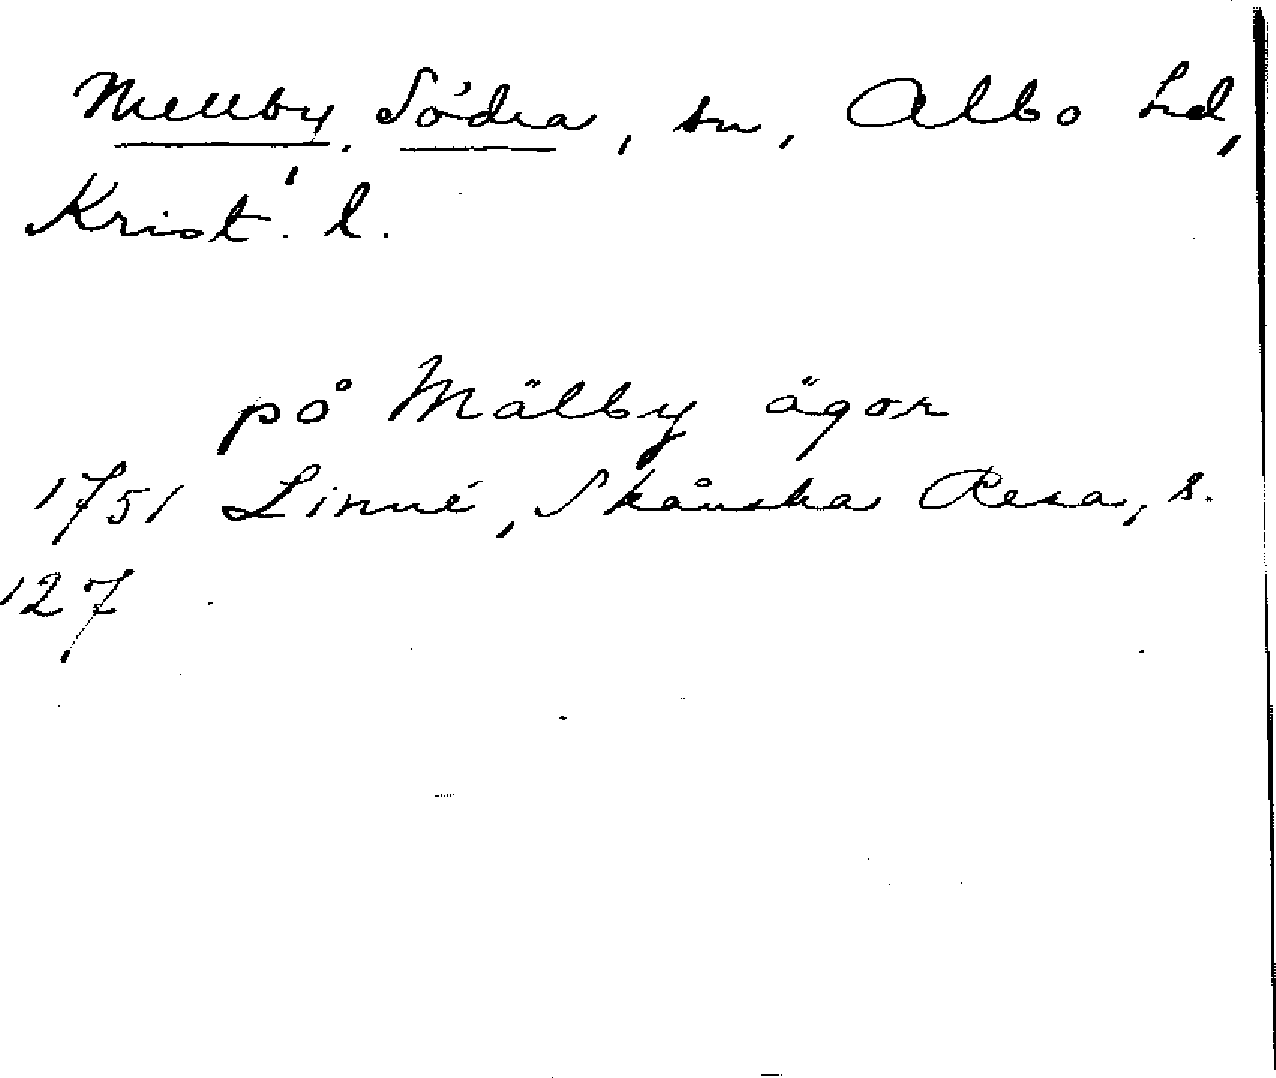 Mellby, Södra, sn, Albo hd,
Krist. l.
på Mälby ägor
1751 Linné, Skånska Resa, s.
127